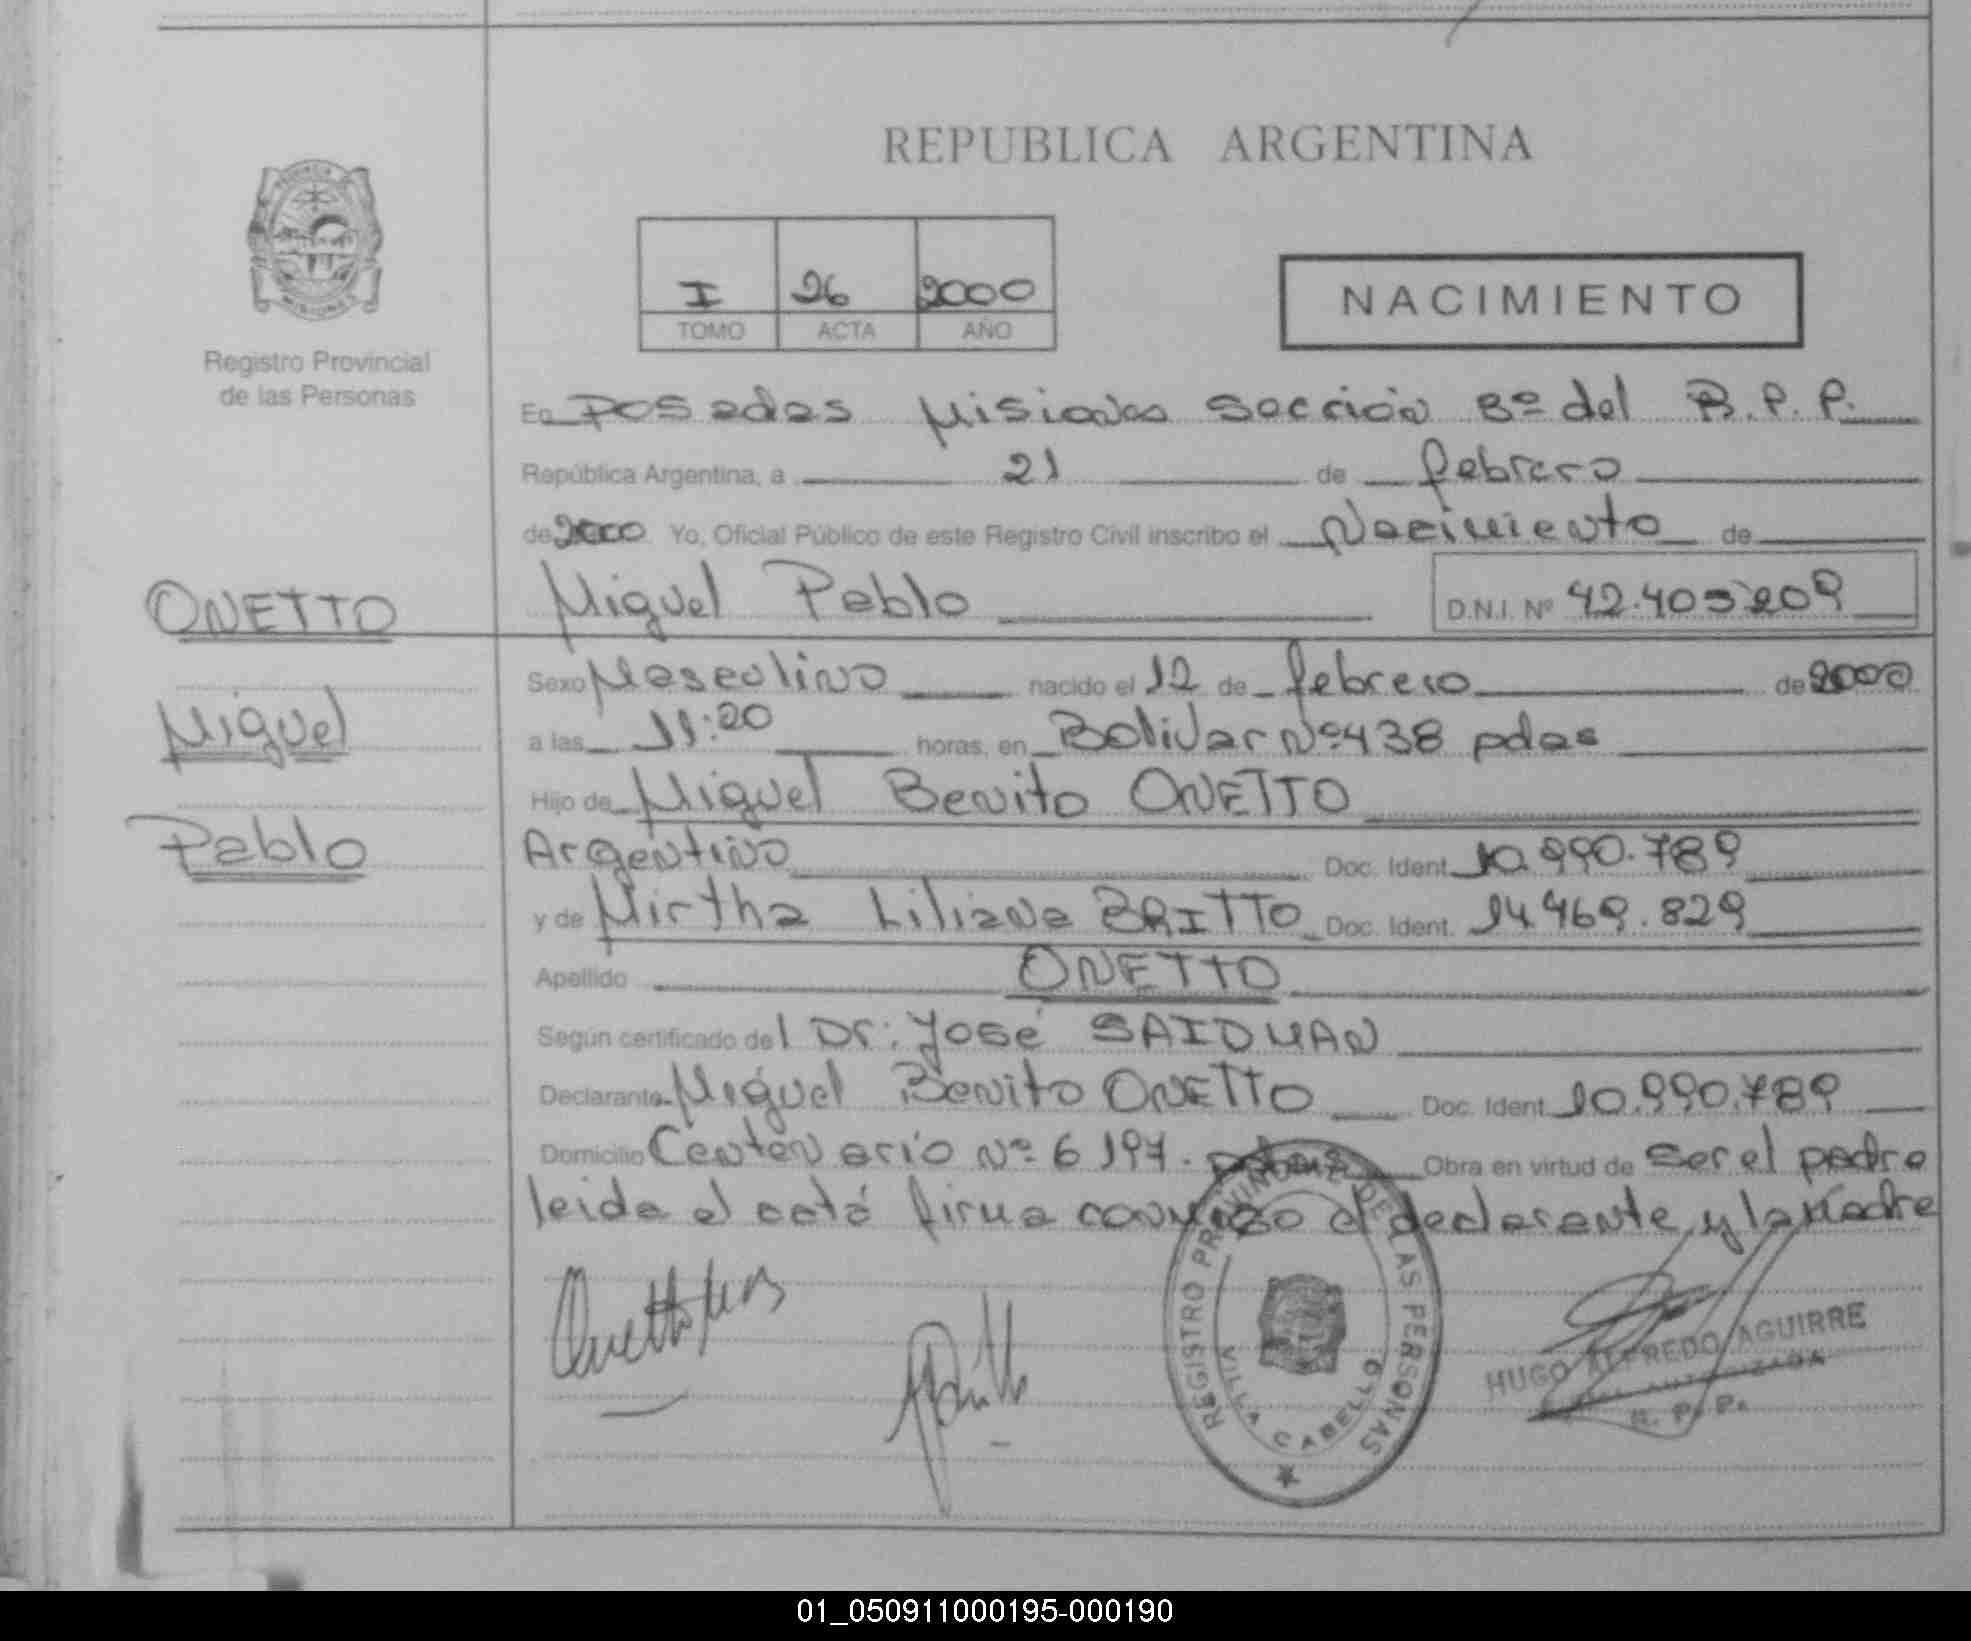 REPUBLICA ARGENTINA
I 26 2000
TOMO ACTA AÑO
NACIMIENTO
Registro Provincial
de las Personas
En Posadas Misiones Sección 8º del R.P.P.
República Argentina, a 21 de febrero
de 2000 Yo, Oficial Público de este Registro Civil inscribo el Nacimiento de
ONETTO
Miguel
Pablo
Miguel Pablo D.N.I. Nº 42.405209
Sexo Masculino nacido el 12 de febrero de 2000
a las 11:20 horas, en Bolivar Nº438 pdas
Hijo de Miguel Benito ONETTO
Argentino Doc. Ident. 10.990.789
y de Mirtha Liliana BRITTO Doc. Ident. 14.469.829
Apellido ONETTO
Según certificado del Dr: José SAIDMAN
Declarante Miguel Benito ONETTO Doc. Ident. 10.990.789
Domicilio Centenario Nº 6197. Obra en virtud de ser el padre
leida el actá firma conmigo el declarante y la Madre
REGISTRO PROVINCIAL DE LAS PERSONAS
VILLA CABELLO
HUGO ALFREDO AGUIRRE
R. P. P.
01_050911000195-000190